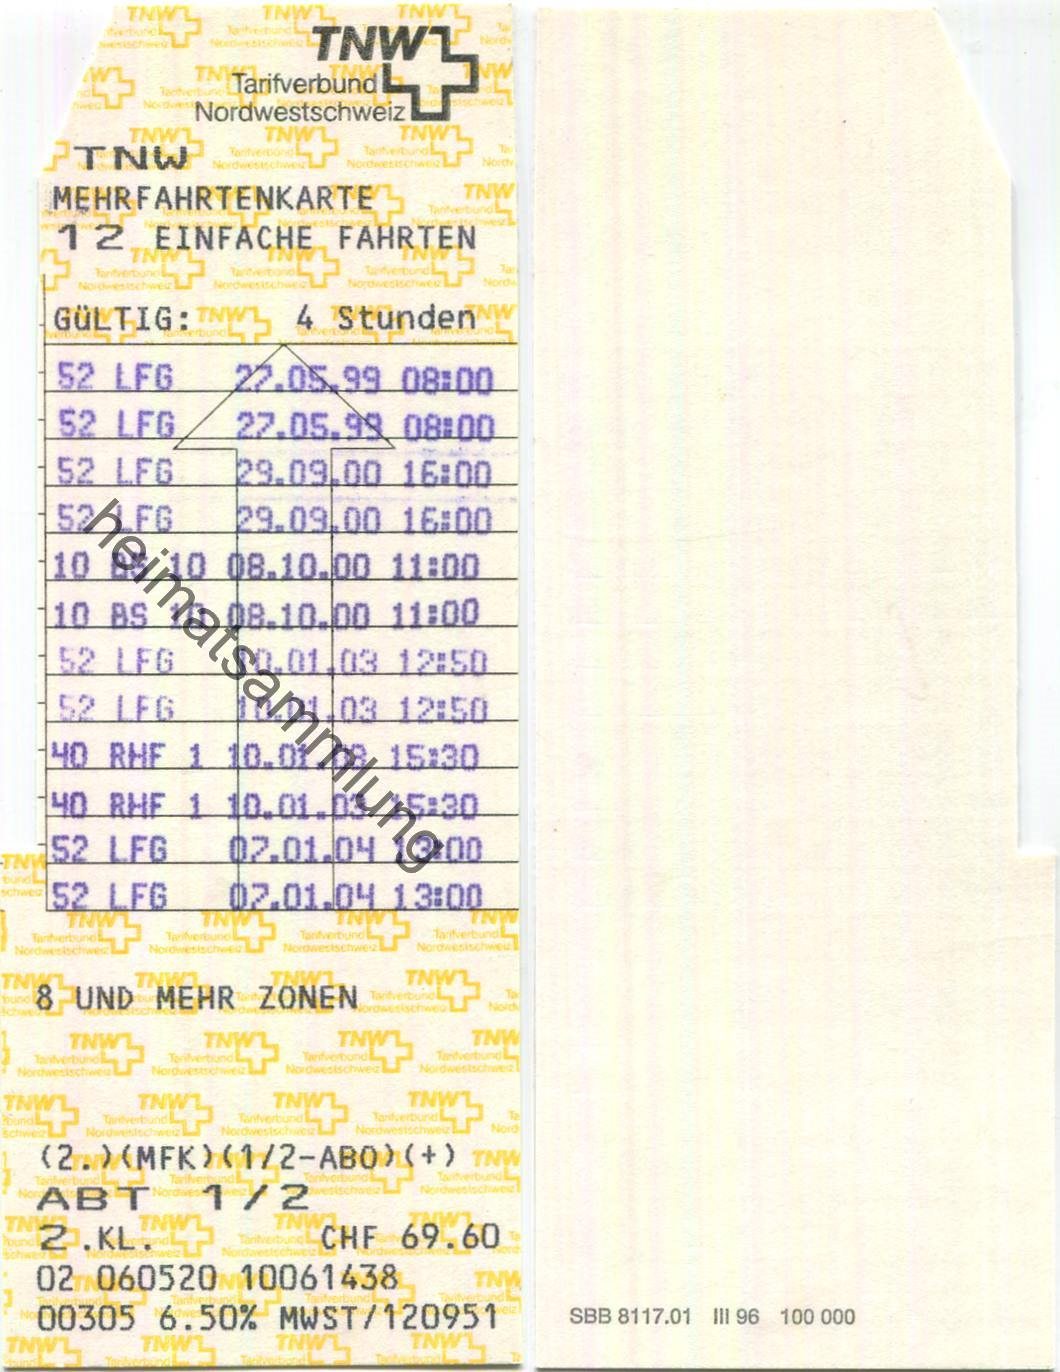 TNW
Tarifverbund
Nordwestschweiz
TNW
MEHRFAHRTENKARTE
12 EINFACHE FAHRTEN
GÜLTIG: 4 Stunden
52 LFG 27.05.99 08:00
52 LFG 27.05.99 08:00
52 LFG 29.09.00 16:00
52 LFG 29.09.00 16:00
10 BS 10 08.10.00 11:00
10 BS 10 08.10.00 11:00
52 LFG 10.01.03 12:50
52 LFG 10.01.03 12:50
40 RHF 1 10.01.03 15:30
40 RHF 1 10.01.03 15:30
52 LFG 07.01.04 13:00
52 LFG 07.01.04 13:00
heimatsammlung
8 UND MEHR ZONEN
(2.)(MFK)(1/2-ABO)(+)
ABT 1/2
2.KL. CHF 69.60
02 060520 10061438
00305 6.50% MWST/120951
SBB 8117.01 III 96 100 000